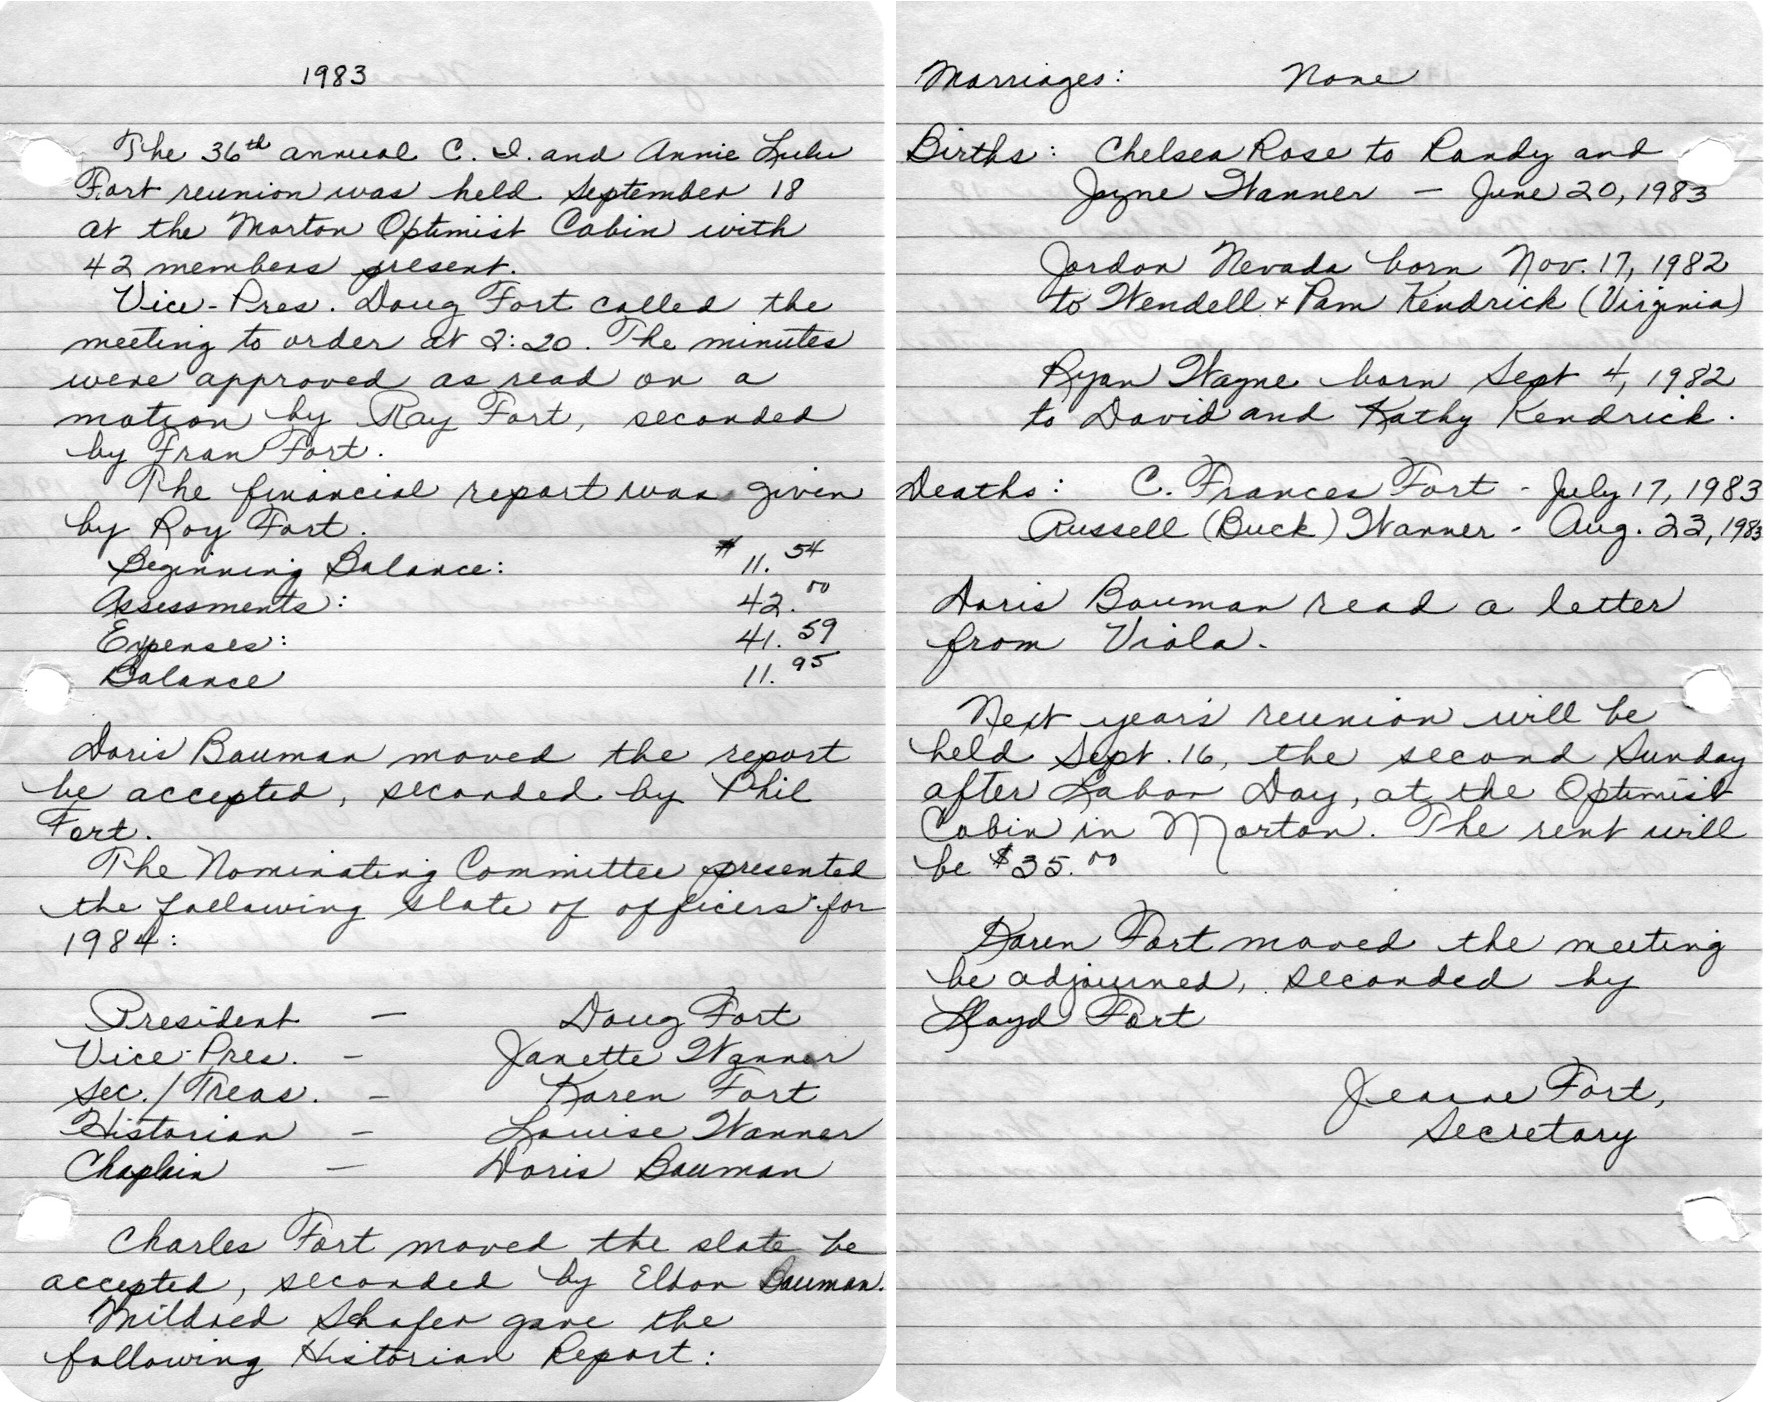 1983
The 36th annual C. I. and Annie Lulu
Fort reunion was held September 18
at the Morton Optimist Cabin with
42 members present.
Vice-Pres. Doug Fort called the
meeting to order at 2:20. The minutes
were approved as read on a
motion by Ray Fort, seconded
by Fran Fort.
The financial report was given
by Roy Fort.
Beginning Balance: $11.54
Assessments: 42.00
Expenses: 41.59
Balance 11.95
Doris Bauman moved the report
be accepted, seconded by Phil
Fort.
The Nominating Committee presented
the following slate of officers for
1984:
President - Doug Fort
Vice-Pres. - Janette Wanner
Sec./Treas. - Karen Fort
Historian - Louise Wanner
Chaplain - Doris Bauman
Charles Fort moved the slate be
accepted, seconded by Eldon Bauman.
Mildred Schafer gave the
following Historian Report:
Marriages: None
Births: Chelsea Rose to Randy and
Jayne Wanner - June 20, 1983
Jordon Nevada born Nov. 17, 1982
to Wendell + Pam Kendrick (Virginia)
Ryan Wayne born Sept 4, 1982
to David and Kathy Kendrick.
Deaths: C. Frances Fort - July 17, 1983
Russell (Buck) Wanner - Aug. 23, 1983
Doris Bauman read a letter
from Viola.
Next year's reunion will be
held Sept. 16, the second Sunday
after Labor Day, at the Optimist
Cabin in Morton. The rent will
be $35.00
Karen Fort moved the meeting
be adjourned, seconded by
Lloyd Fort
Jeanne Fort,
Secretary